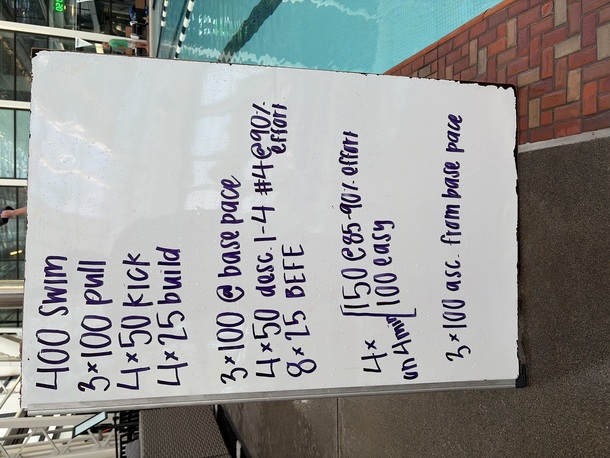 400 swim
3x100 pull
4x50 kick
4x25 build
3x100 @ base pace
4x50 desc. 1-4 #4@90%
effort
8x25 BEFE
4x [150@85-90% effort
on 4min [100 easy
3x100 asc. from base pace